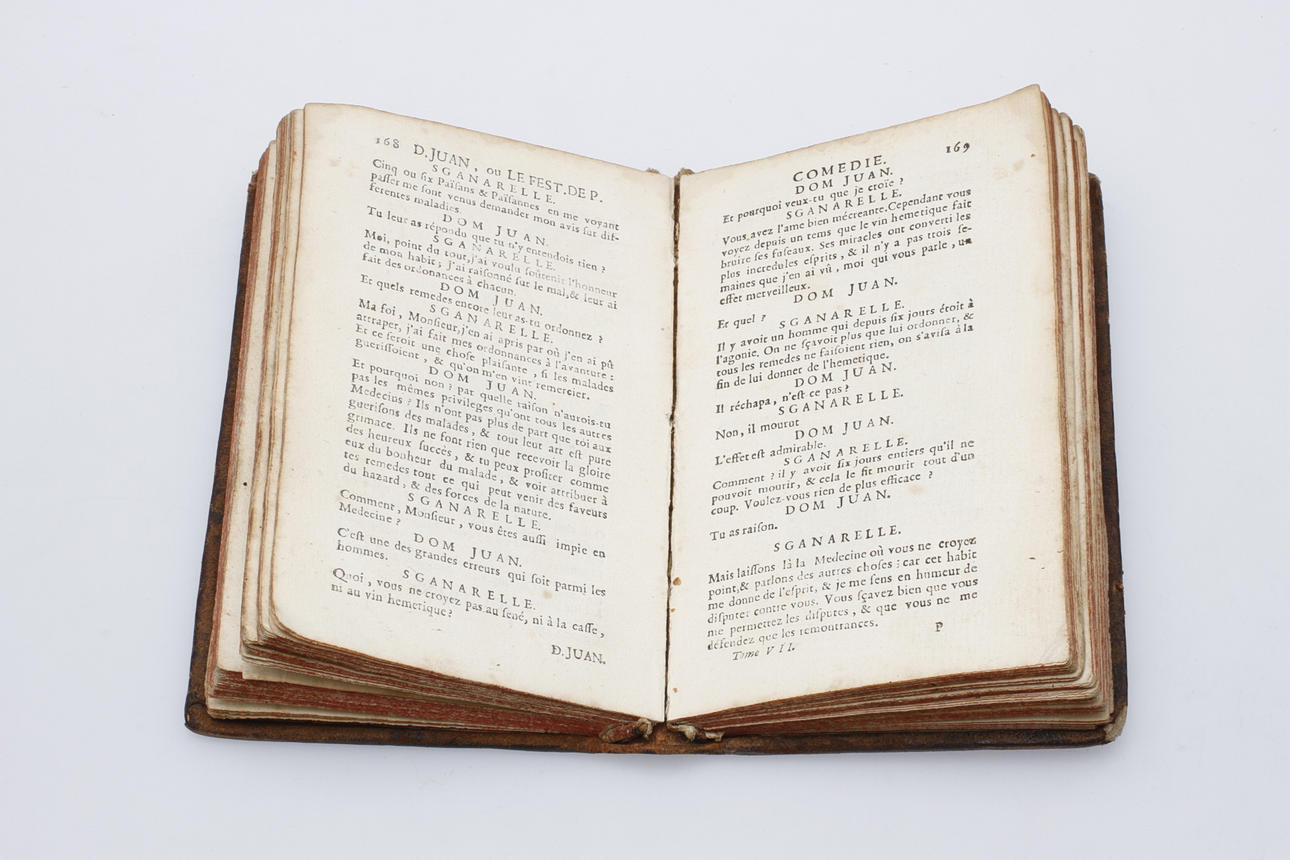 168 D. JUAN, ou LE FEST. DE P.
SGANARELLE.
Cinq ou six Païsans & Païsannes en me voyant
passer me sont venus demander mon avis sur dif-
ferentes maladies.
DOM JUAN.
Tu leur as répondu que tu n'y entendois rien ?
SGANARELLE.
Moi, point du tout, j'ai voulu soûtenir l'honneur
de mon habit; j'ai raisonné sur le mal, & leur ai
fait des ordonances à chacun.
DOM JUAN.
Et quels remedes encore leur as-tu ordonnez ?
SGANARELLE.
Ma foi, Monsieur, j'en ai apris par où j'en ai pû
attraper, j'ai fait mes ordonnances à l'avanture :
Et ce seroit une chose plaisante, si les malades
guerissoient, & qu'on m'en vint remercier.
DOM JUAN.
Et pourquoi non ? par quelle raison n'aurois-tu
pas les mêmes privileges qu'ont tous les autres
Medecins ? Ils n'ont pas plus de part que toi aux
guerisons des malades, & tout leur art est pure
grimace. Ils ne font rien que recevoir la gloire
des heureux succès, & tu peux profiter comme
eux du bonheur du malade, & voir attribuer à
tes remedes tout ce qui peut venir des faveurs
du hazard, & des forces de la nature.
SGANARELLE.
Comment, Monsieur, vous êtes aussi impie en
Medecine ?
DOM JUAN.
C'est une des grandes erreurs qui soit parmi les
hommes.
SGANARELLE.
Quoi, vous ne croyez pas au sené, ni à la casse,
ni au vin hemetique?
D. JUAN.
COMEDIE. 169
DOM JUAN.
Et pourquoi veux-tu que je croïe ?
SGANARELLE.
Vous avez l'ame bien mécreante. Cependant vous
voyez depuis un tems que le vin hemetique fait
bruire ses fuseaux. Ses miracles ont converti les
plus incredules esprits, & il n'y a pas trois se-
maines que j'en ai vû, moi qui vous parle, un
effet merveilleux.
DOM JUAN.
Et quel ?
SGANARELLE.
Il y avoit un homme qui depuis six jours étoit à
l'agonie. On ne sçavoit plus que lui ordonner, &
tous les remedes ne faisoient rien, on s'avisa à la
fin de lui donner de l'hemetique.
DOM JUAN.
Il réchapa, n'est ce pas ?
SGANARELLE.
Non, il mourut
DOM JUAN.
L'effet est admirable.
SGANARELLE.
Comment ? il y avoit six jours entiers qu'il ne
pouvoit mourir, & cela le fit mourir tout d'un
coup. Voulez-vous rien de plus efficace ?
DOM JUAN.
Tu as raison.
SGANARELLE.
Mais laissons là la Medecine où vous ne croyez
point, & parlons des autres choses : car cet habit
me donne de l'esprit, & je me sens en humeur de
disputer contre vous. Vous sçavez bien que vous
me permettez les disputes, & que vous ne me
défendez que les remontrances.
Tome VII. P